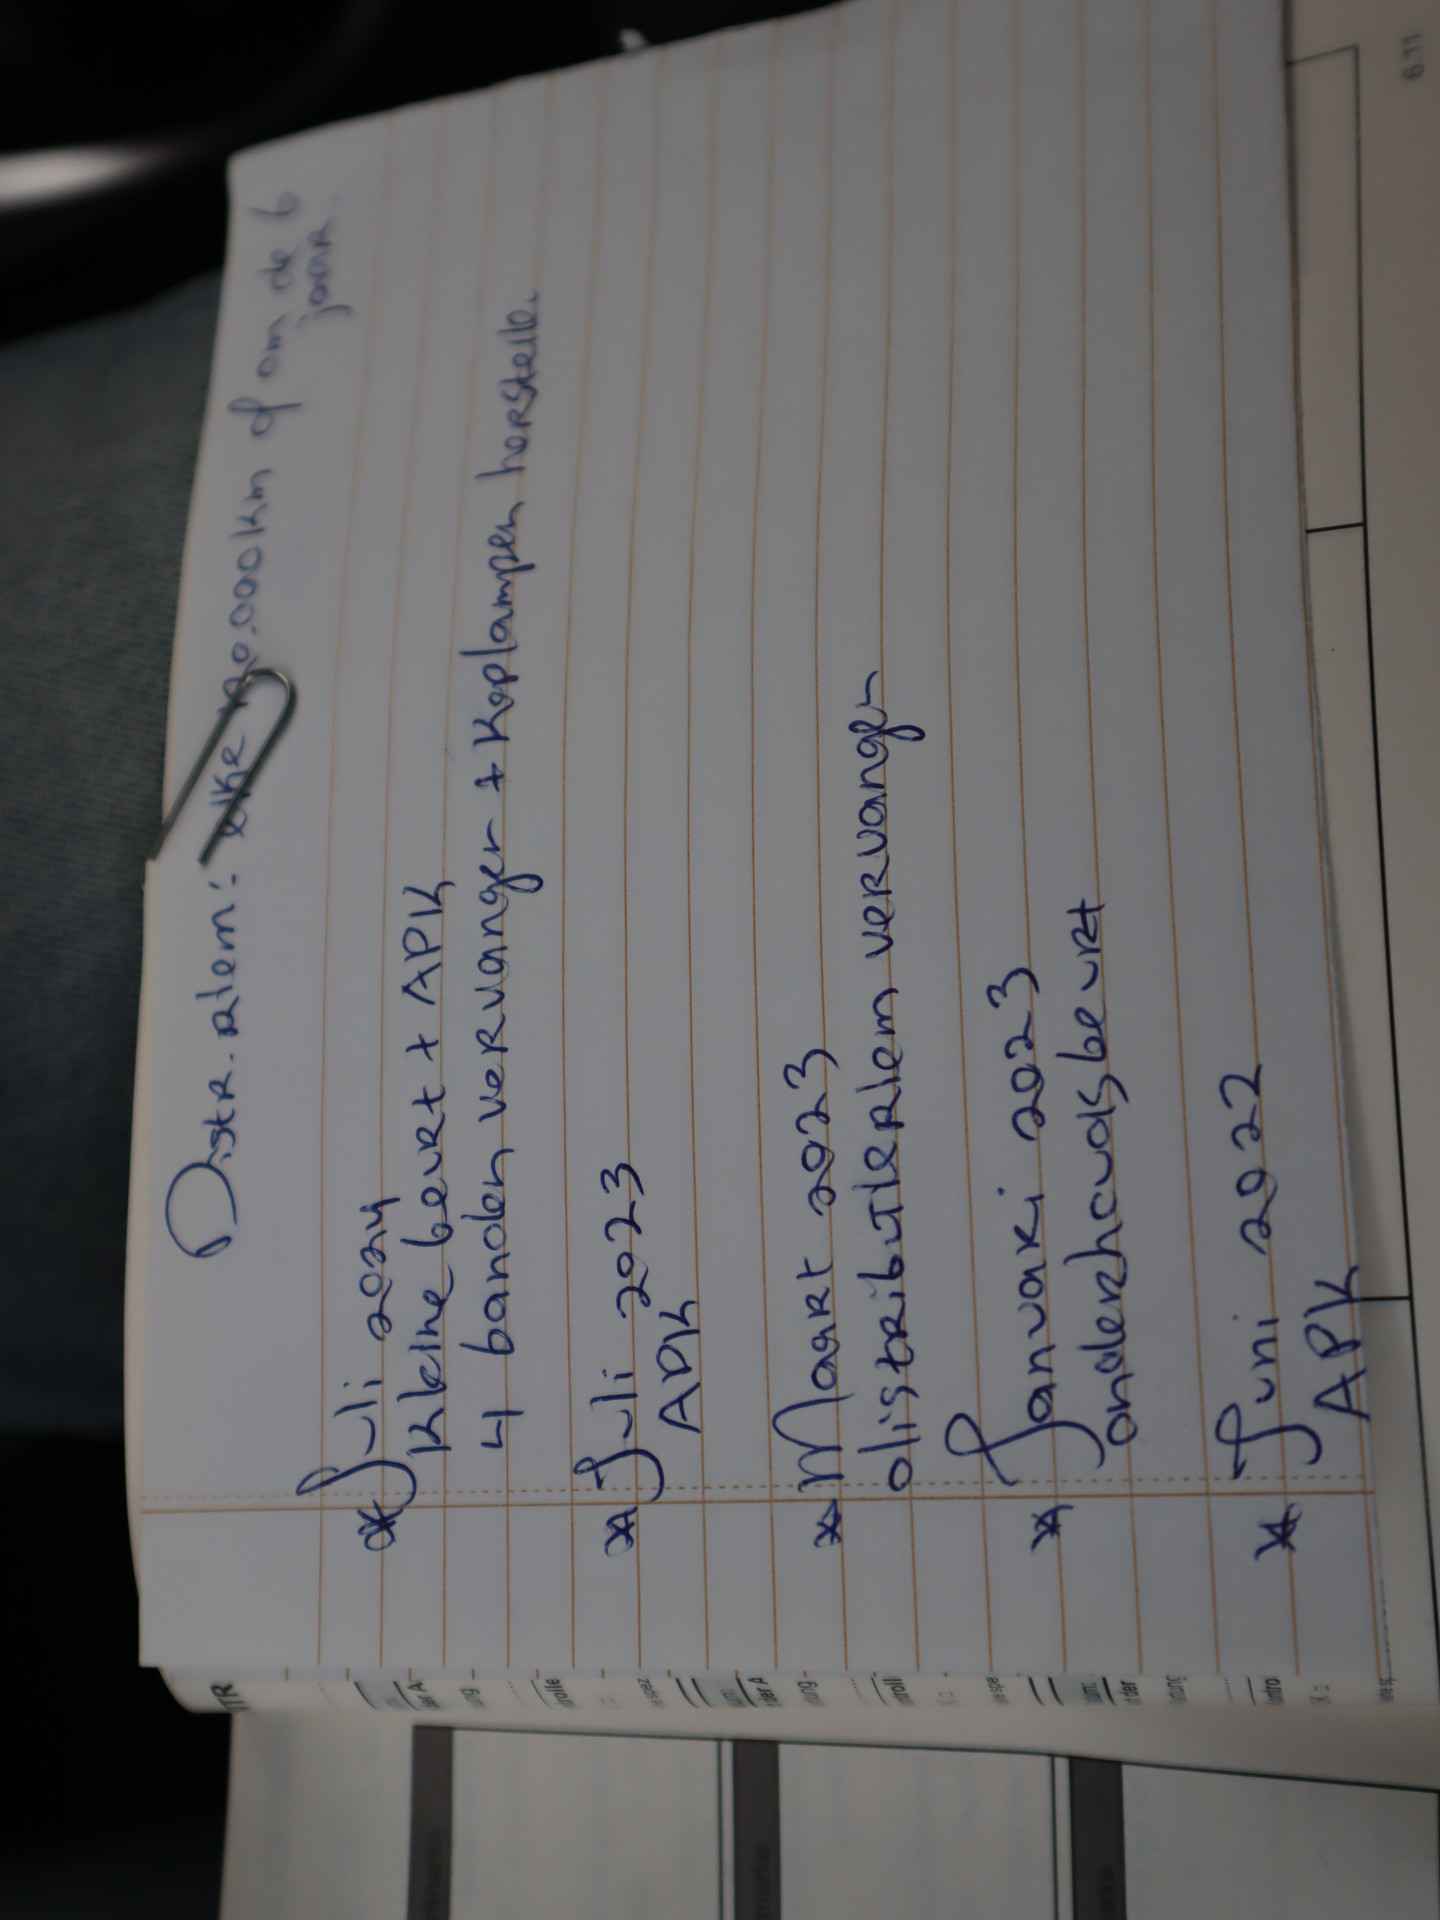 Distr. riem: elke  km of om de 6
jaar.
* Juli 2024
Kleine beurt + APK
4 banden vervangen + Koplampen herstelle.
* Juli 2023
APK
* Maart 2023
distributieriem vervangen
* Januari 2023
onderhoudsbeurt
* Juni 2022
APK
6.11
TR